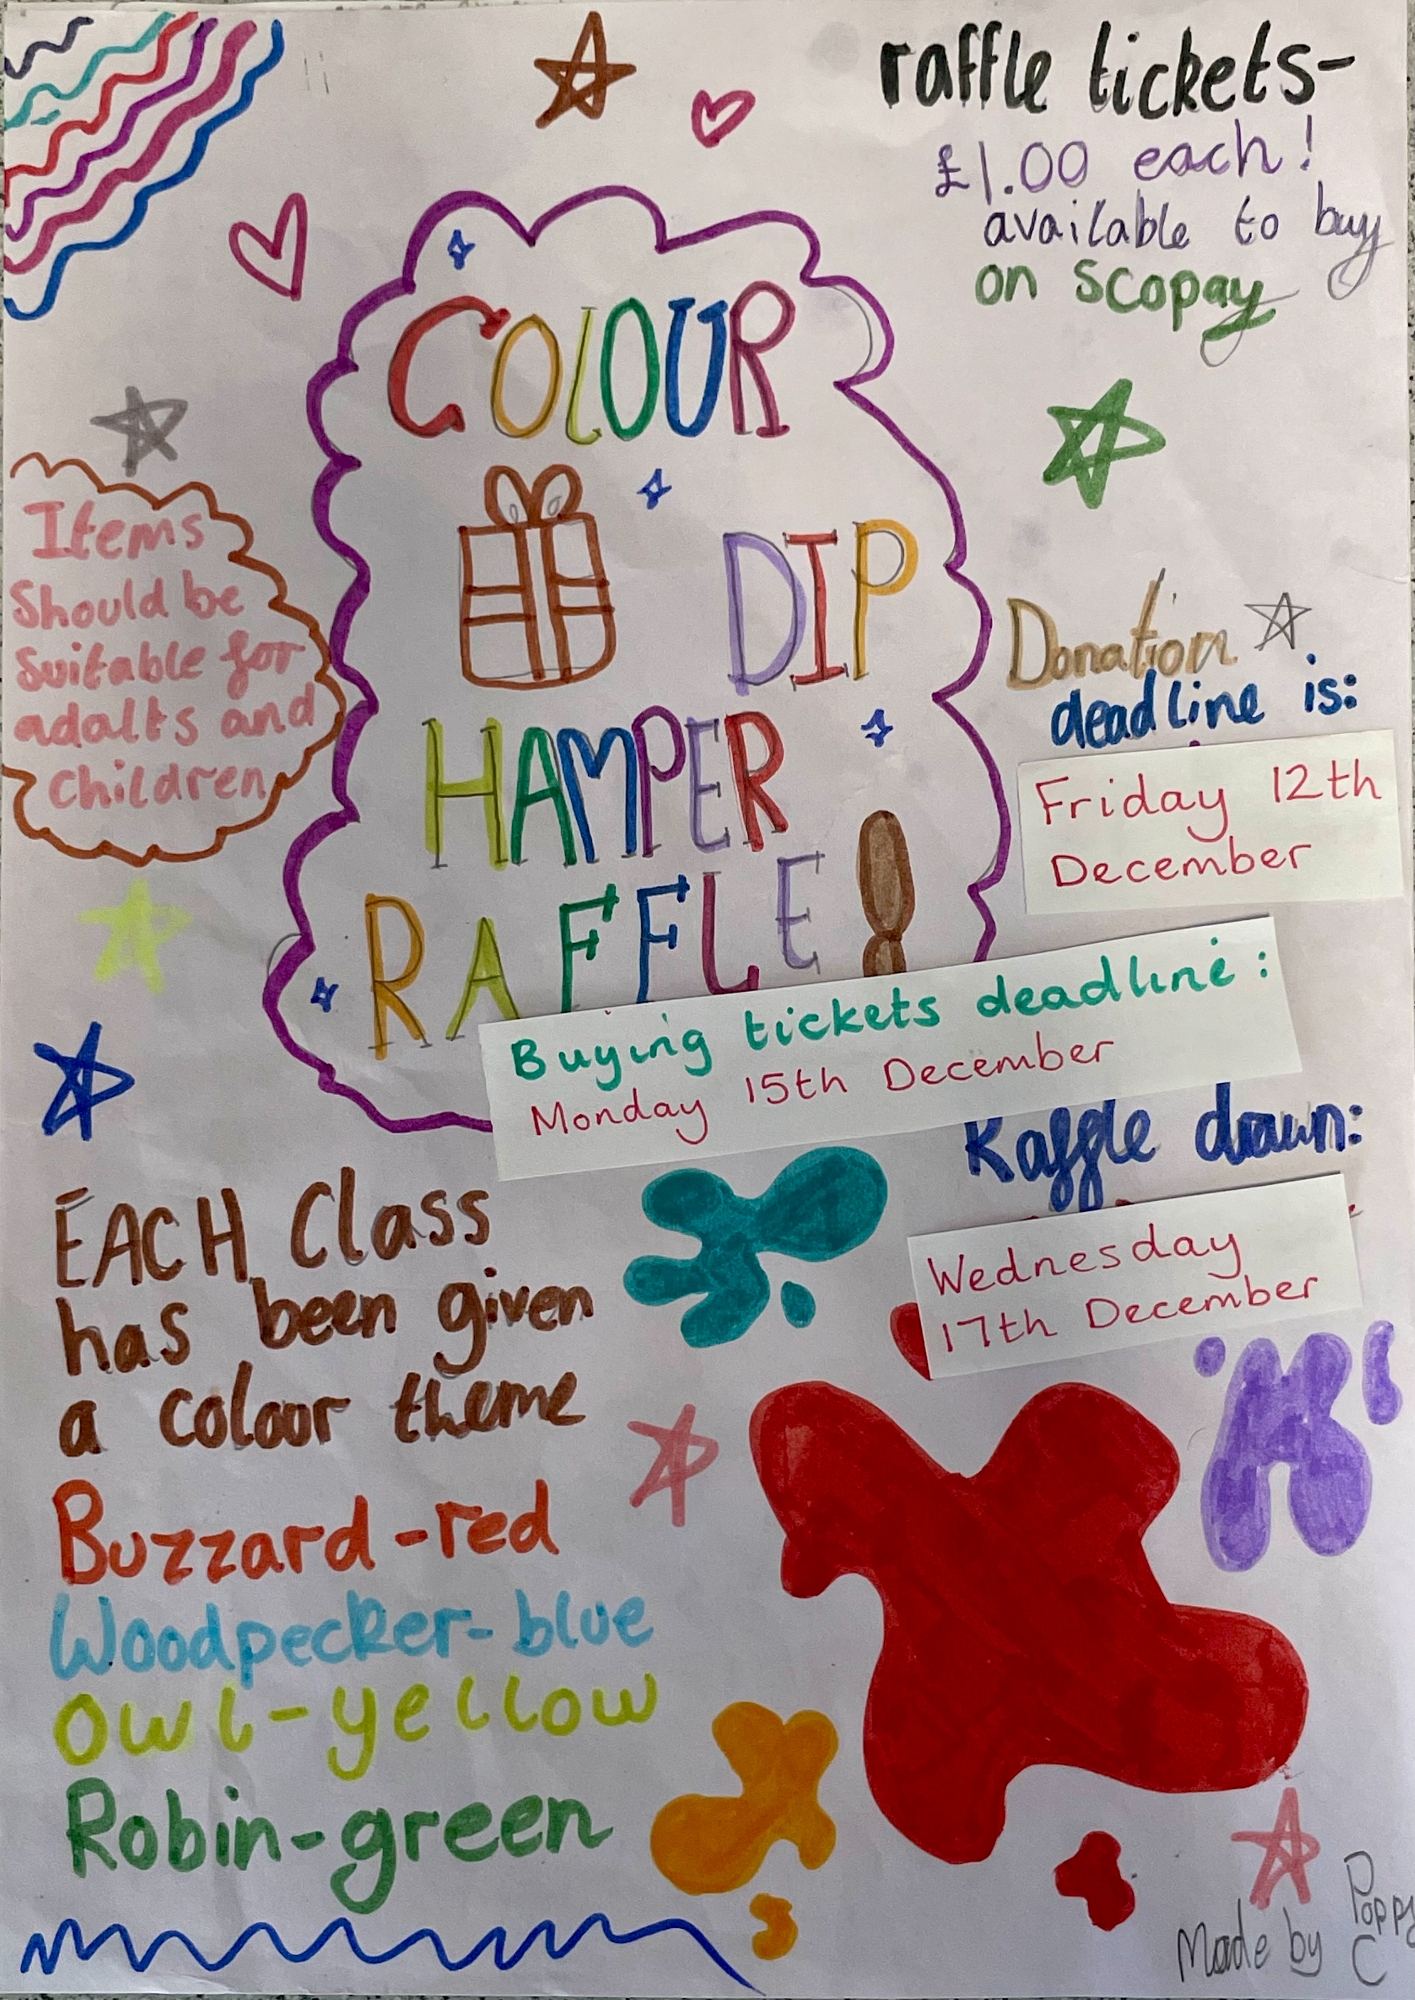 raffle tickets-
£1.00 each!
available to buy
on scopay
COLOUR
DIP
HAMPER
RAFFLE!
Items
Should be
Suitable for
adalts and
children
Donation
deadline is:
Friday 12th
December
Buying tickets deadline:
Monday 15th December
Raffle drawn:
Wednesday
17th December
EACH Class
has been given
a colour theme
Buzzard-red
Woodpecker-blue
Owl-yellow
Robin-green
Made by Poppy
C